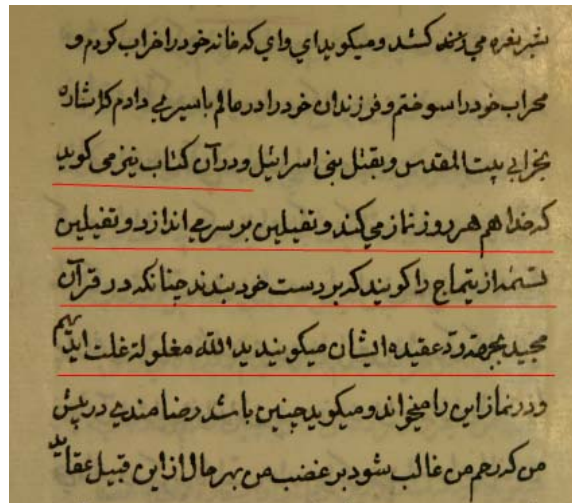 شیر نعره می زند کشد و میکوید ای وای که خانه خود را خراب کردم و
محراب خود را سوختم و فرزندان خود را در عالم باسیری دادم که اشاره
بخرابی بیت المقدس و بقتل بنی اسرائیل و در آن کتاب نیز می کوید
که خدا هم هر روز نماز می کند و تفیلین بر سر می اندازد و تفیلین
تسمه از تیماج را کویند که بر دست خود بندند چنانکه در قرآن
مجید عقیده ایشان میکویند ید الله مغلولة غلت ایدیهم
و در نماز این را میخواند و میکوید چنین باشد رضامندی در پیش
من که رحم من غالب شود بر غضب من بهر حال از این قبیل عقاید